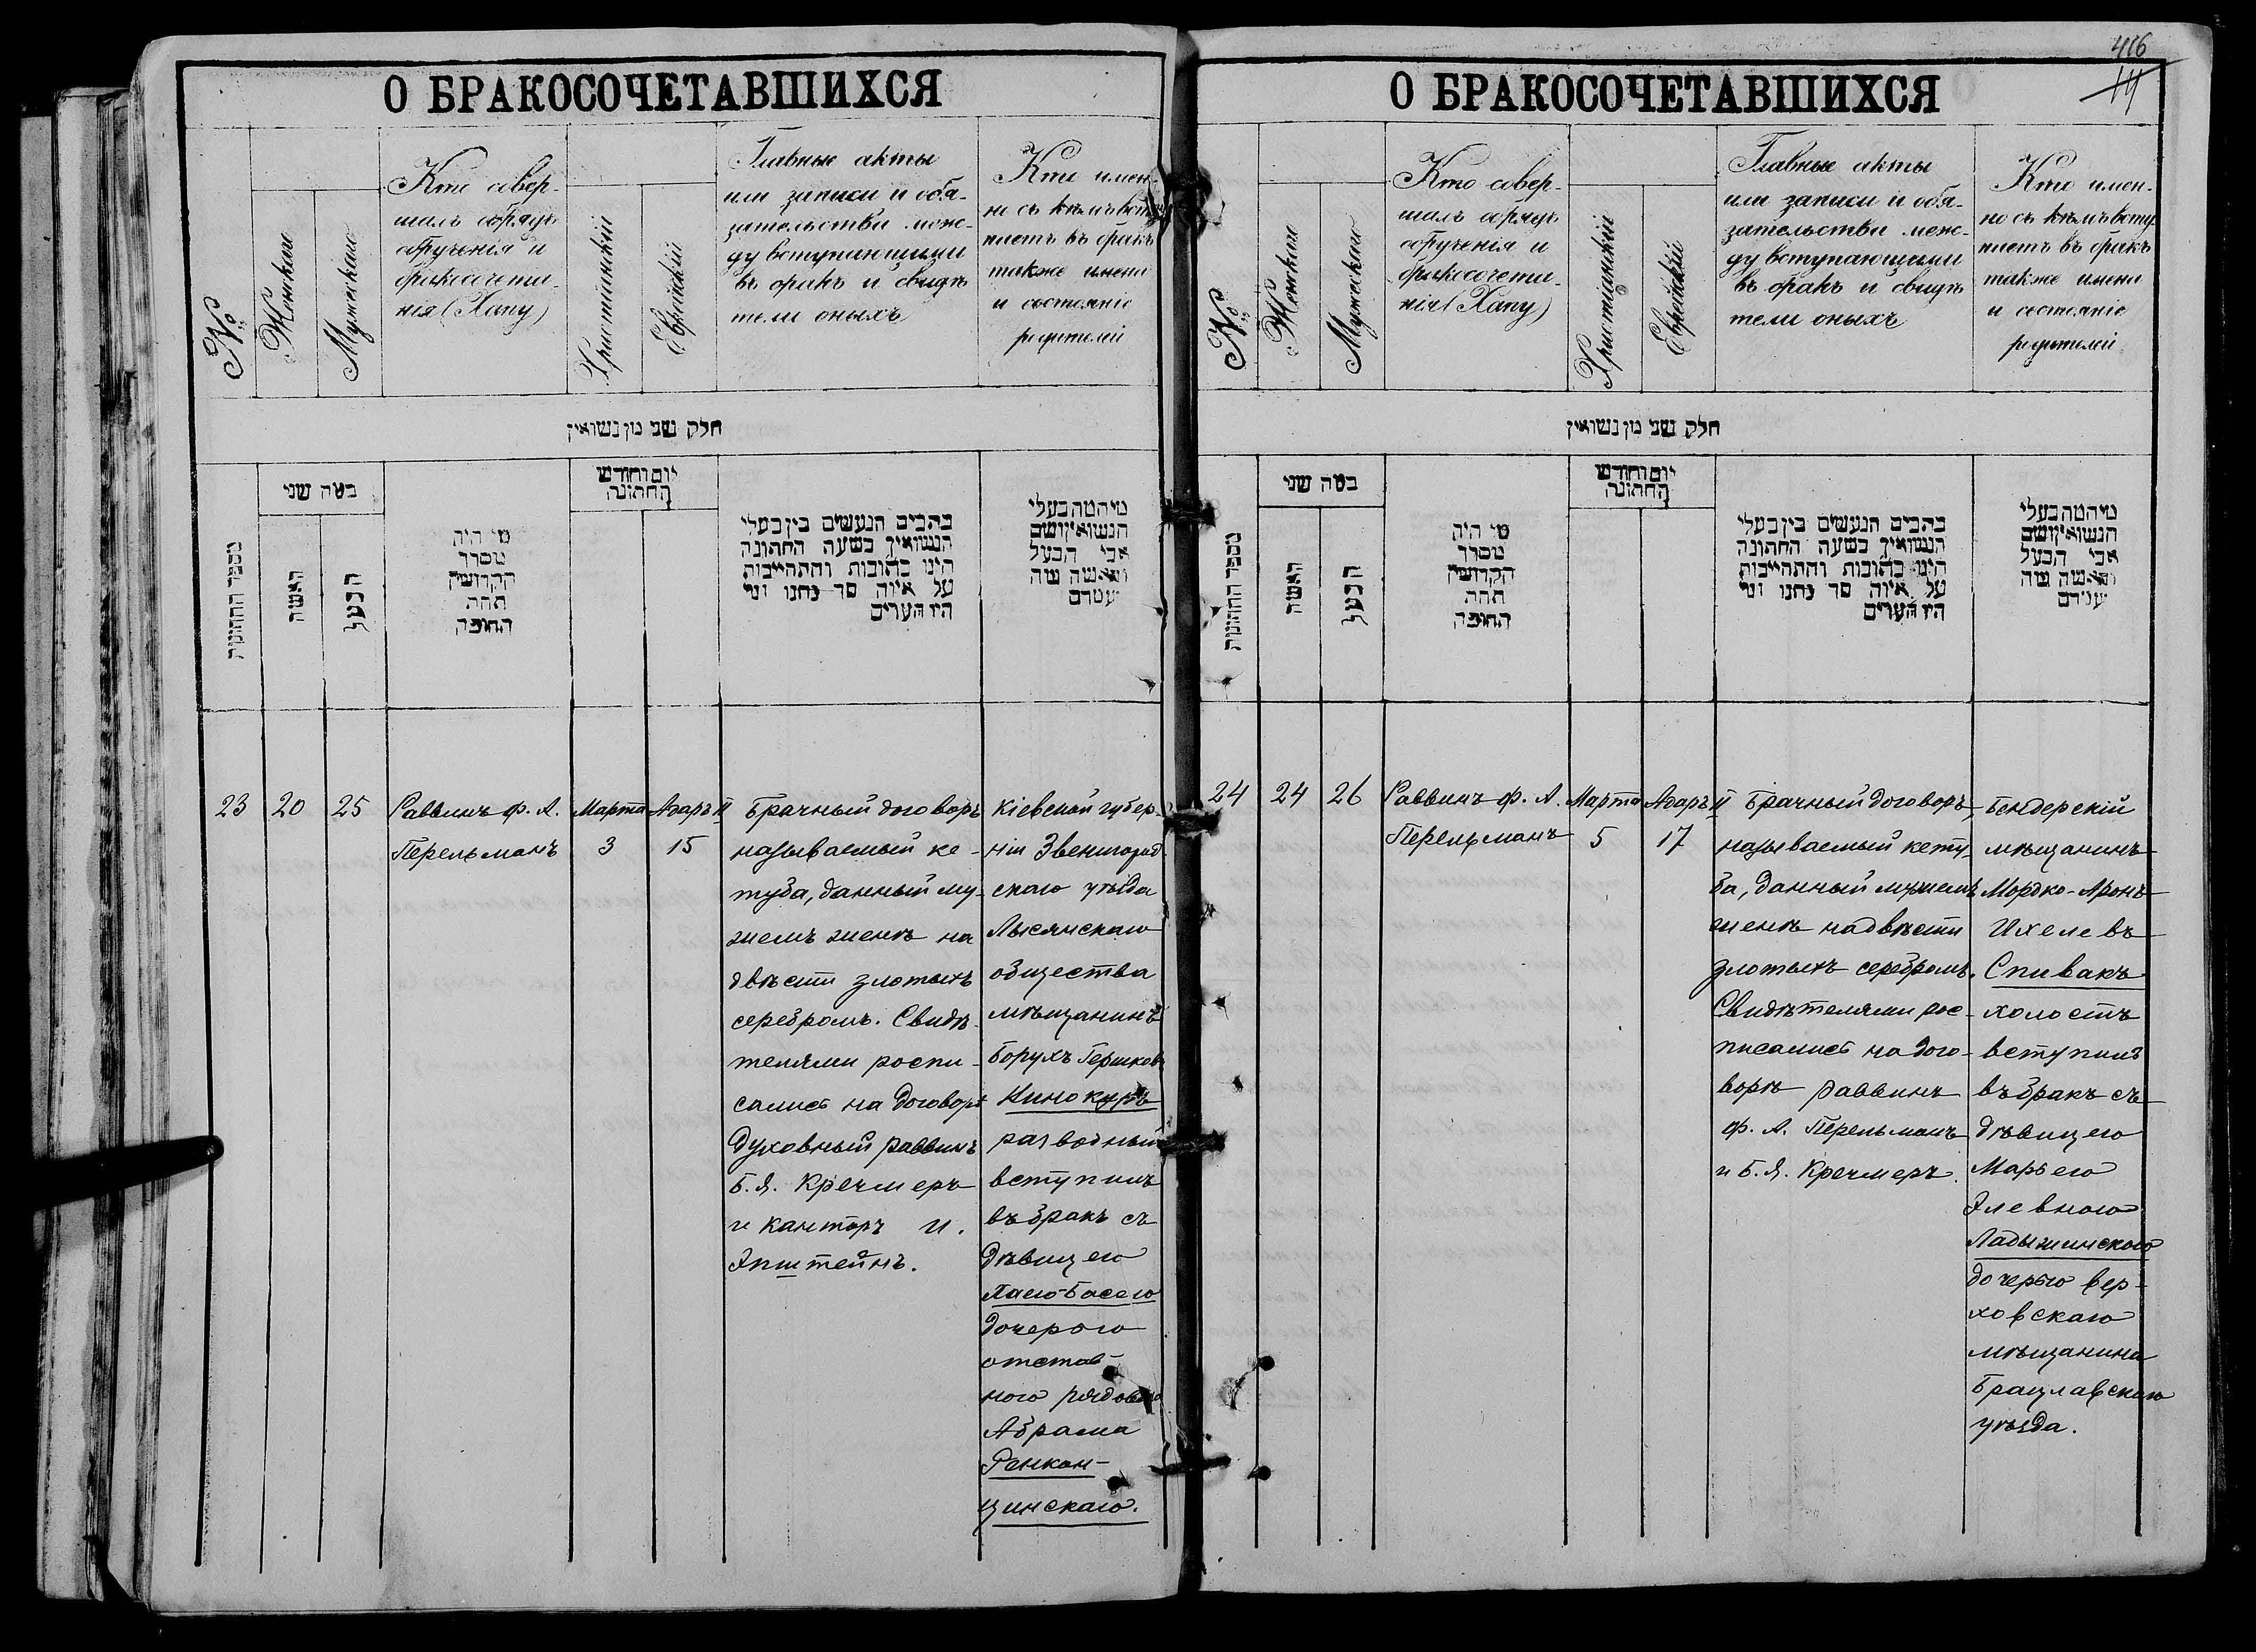 О БРАКОСОЧЕТАВШИХСЯ
№
Женскаго
Мужескаго
Кто совер-
шалъ обрядъ
обрученія и
бракосочета-
нія (Хапу)
Христіанскій
Еврейскій
Главные акты
или записи и обя-
зательства меж-
ду вступающими
въ бракъ и свидѣ
тели оныхъ
Кто имен-
но съ кѣмъ всту
паетъ въ бракъ
также имена
и состояніе
родителей
חלק שני מן נשואין
מספר החתונות
כמה שני
האשה
הבעל
מי היה
מסדר
הקדושין
תחת
החופה
יום וחודש
החתונה
כתבים הנעשים בין בעלי
הנשואין בשעה החתונה
היינו כתובות והתחייבות
על איזה סך נתנו ומי
היו העדים
מי המה בעלי
הנשואין ושם
אבי הבעל
והאשה
23
20
25
Раввинъ Ф. А.
Перельманъ
Марта
3
Адаръ II
15
Брачный договоръ
называемый ке-
туба, данный му-
жемъ женѣ на
двѣсти злотыхъ
серебромъ. Свидѣ-
телями роспи-
сались на договорѣ
духовный раввинъ
Б. Я. Кречмеръ
и канторъ И.
Эпштейнъ.
Кіевской губер-
ніи Звенигород-
скаго уѣзда
Лысянскаго
общества
мѣщанинъ
Борухъ Гершковъ
Винокуръ
разводный
вступилъ
въ бракъ съ
дѣвицею
Паею-Басею
дочерью
отстав-
ного рядового
Абрама
Ренкон-
цинскаго.
416
О БРАКОСОЧЕТАВШИХСЯ
№
Женскаго
Мужескаго
Кто совер-
шалъ обрядъ
обрученія и
бракосочета-
нія (Хапу)
Христіанскій
Еврейскій
Главные акты
или записи и обя-
зательства меж-
ду вступающими
въ бракъ и свидѣ
тели оныхъ
Кто имен-
но съ кѣмъ всту
паетъ въ бракъ
также имена
и состояніе
родителей
חלק שני מן נשואין
מספר החתונות
כמה שני
האשה
הבעל
מי היה
מסדר
הקדושין
תחת
החופה
יום וחודש
החתונה
כתבים הנעשים בין בעלי
הנשואין בשעה החתונה
היינו כתובות והתחייבות
על איזה סך נתנו ומי
היו העדים
מי המה בעלי
הנשואין ושם
אבי הבעל
והאשה
24
24
26
Раввинъ Ф. А.
Перельманъ
Марта
5
Адаръ II
17
Брачный договоръ,
называемый кету-
ба, данный мужемъ
женѣ на двѣсти
злотыхъ серебромъ.
Свидѣтелями рос-
писались на дого-
ворѣ раввинъ
Ф. А. Перельманъ
и Б. Я. Кречмеръ.
Бендерскій
мѣщанинъ
Мордко-Аронъ
Ихелевъ
Спивакъ
холостъ
вступилъ
въ бракъ съ
дѣвицею
Марьею
Элевною
Ладыжинскою
дочерью вер-
ховскаго
мѣщанина
Брацлавскаго
уѣзда.